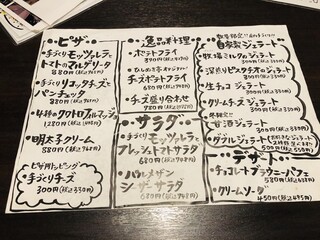 ピザ
・手づくりモッツァレラと
トマトのマルゲリータ
880円
・手づくりリコッタチーズと
パンチェッタ
880円
・4種のクワトロフォルマッジ
1280円
・明太子クリーム
680円(税込748円)
ピザ用トッピング
・手づくりチーズ
300円(税込330円)
一品料理
・ポテトフライ
・チーズポテトフライ
・チーズ盛り合わせ
サラダ
・手づくりモッツァレラと
フレッシュトマトサラダ
680円(税込748円)
・パルメザン
シーザーサラダ
680円(税込748円)
自家製ジェラート
・牧場ミルクのジェラート
300円(税込330円)
・深煎りピスタチオのジェラート
300円(税込330円)
・生チョコジェラート
300円(税込330円)
・クリームチーズジェラート
300円(税込330円)
・甘酒ジェラート
・ダブルジェラート
500円(税込550円)
デザート
・チョコレートブラウニーパフェ
・クリームソーダ
450円(税込495円)